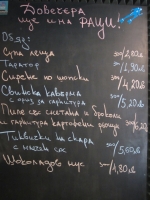 Довечера
ще има РАЦИ!
Обяд:
Супа леща 300/2,80лв
Таратор 300/1,90лв
Сирене по шопски 300/4,20лв
Свинска каварма
с ориз за гарнитура 350/5,20лв
Пиле със сметана и броколи
и гарнитура картофени 6,20
Тиквички на скара
с млечен сос 300/5,60лв
Шоколадово 1,80лв